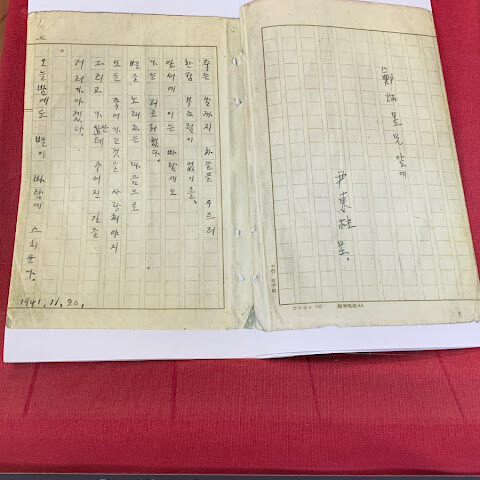 鄭炳昱兄앞에
尹東柱 呈.
죽는 날까지 하늘을 우르러
한점 부끄럼이 없기를,
잎새에 이는 바람에도
나는 괴로워했다.
별을 노래하는 마음으로
모든 죽어가는것을 사랑해야지
그리고 나한테 주어진 길을
거러가야겠다.
오늘밤에도 별이 바람에 스치운다.
1941.11.20.